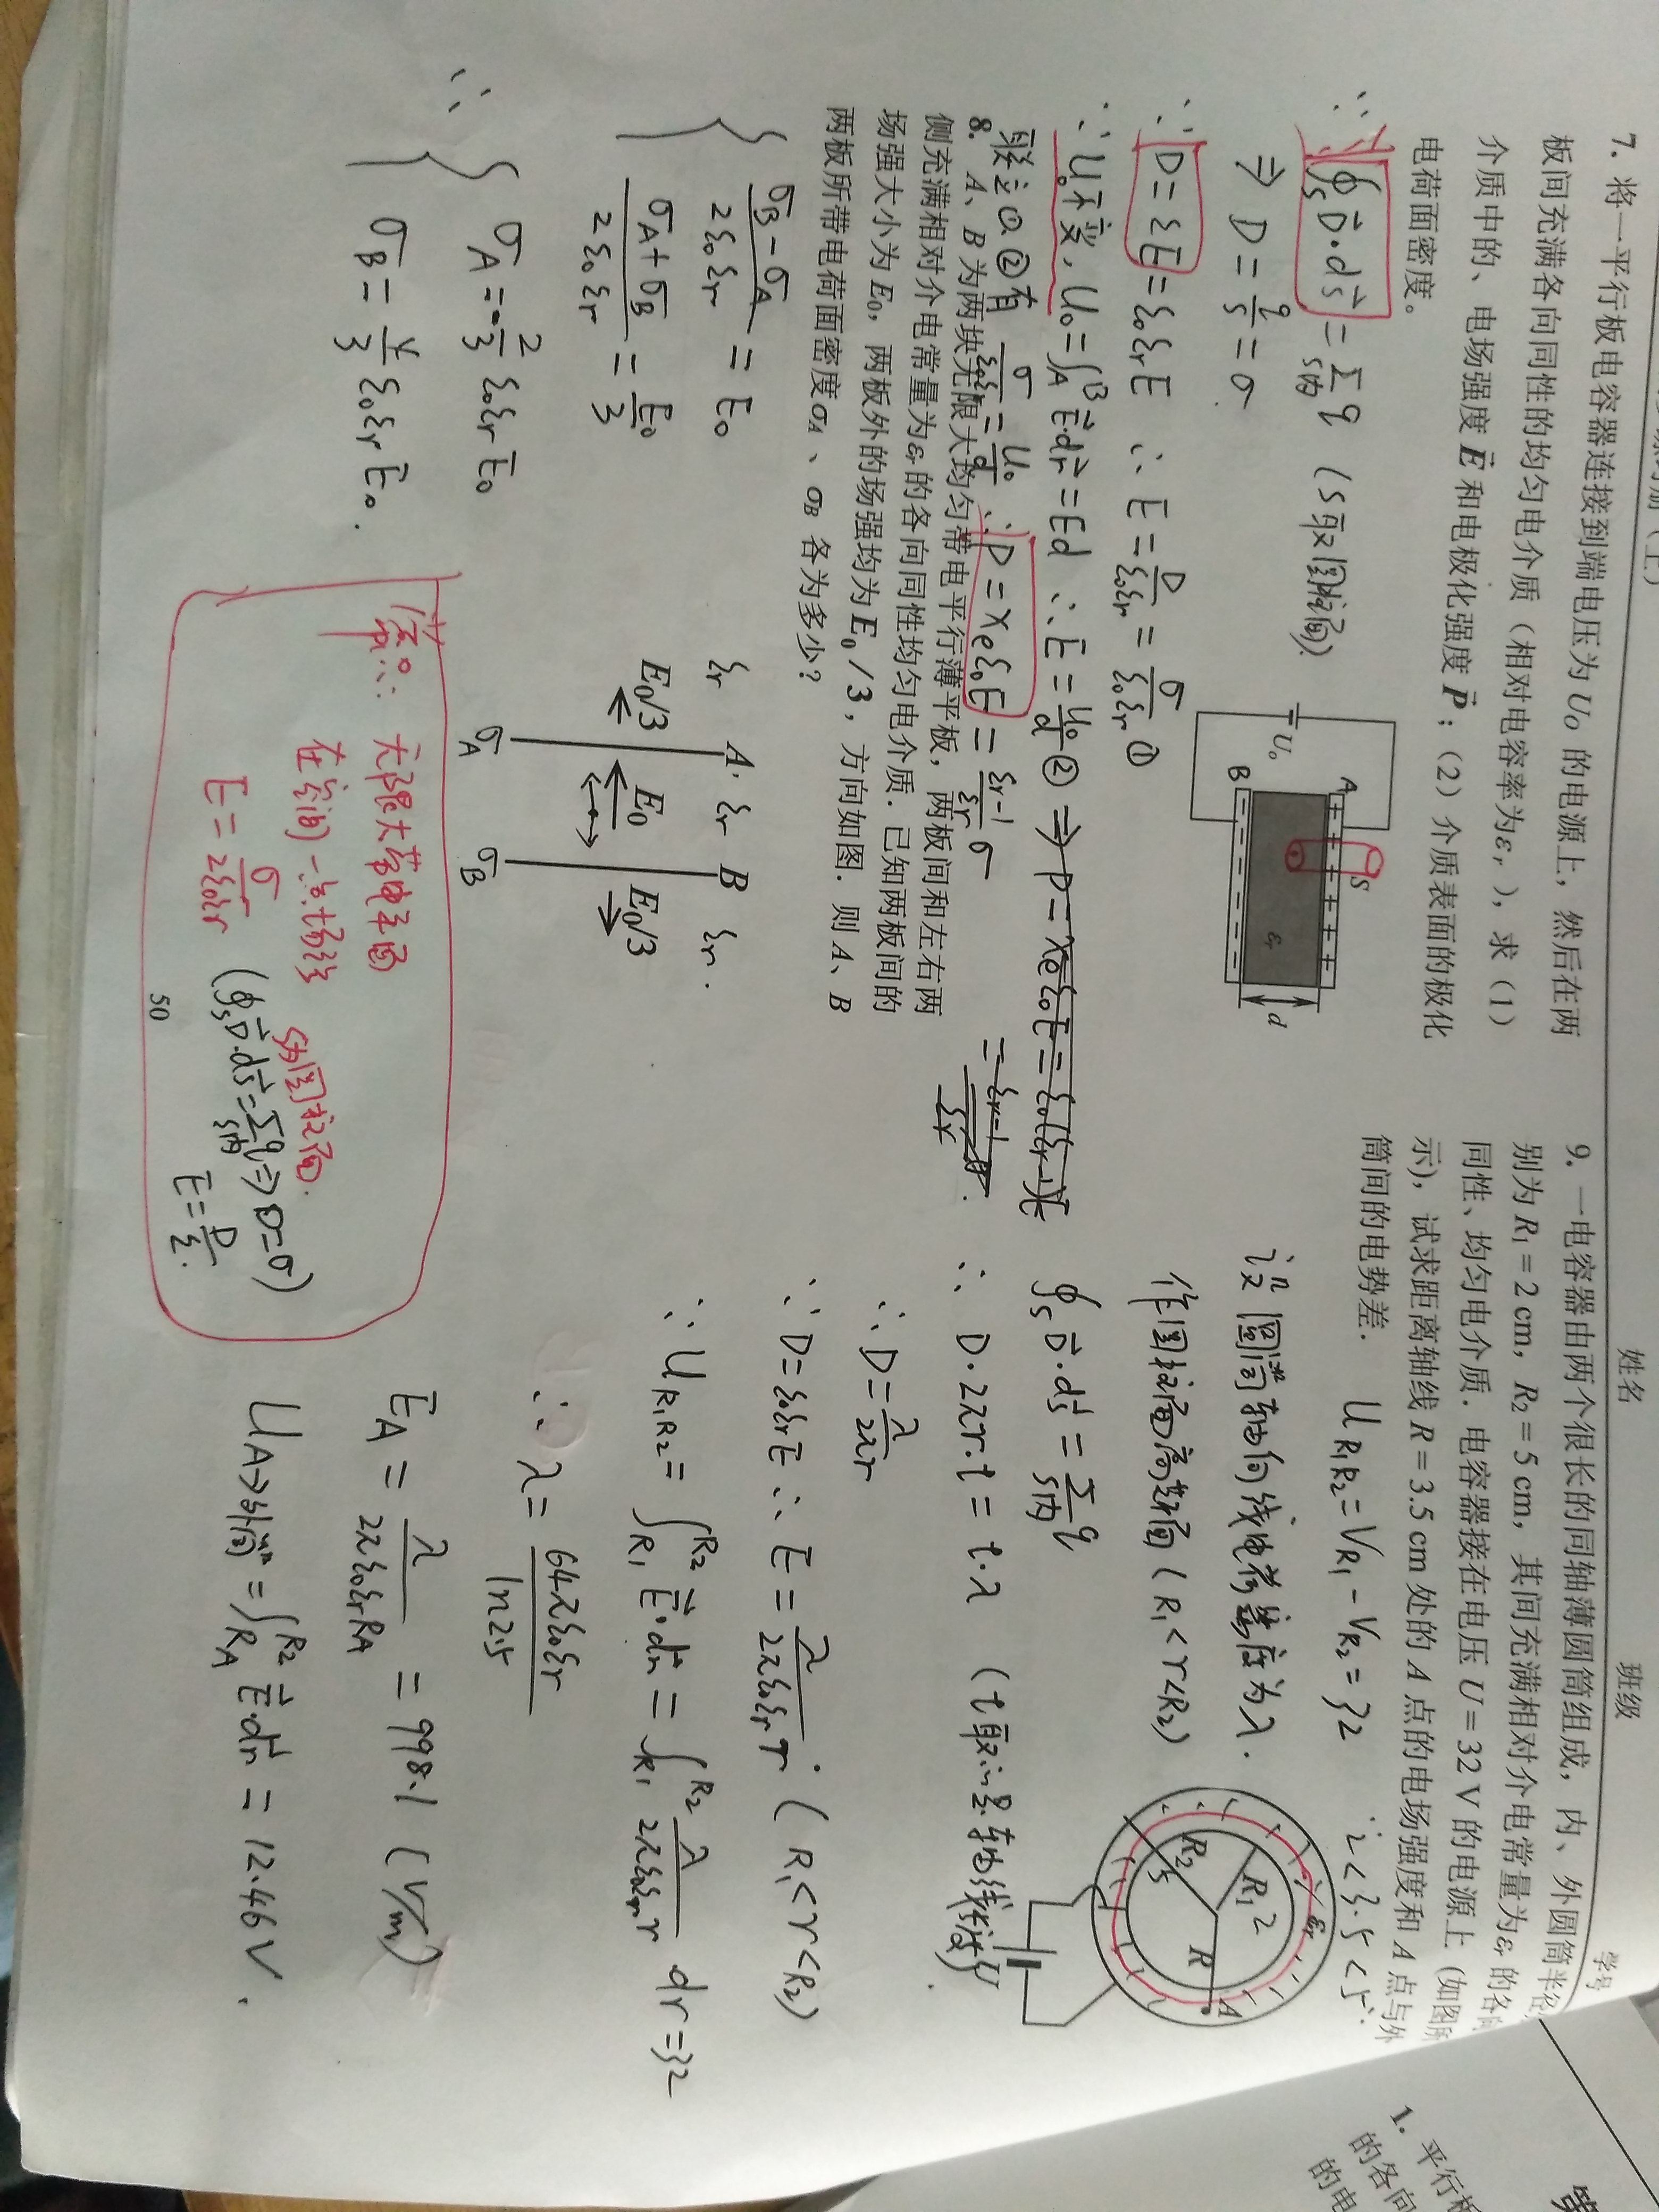 姓名
班级
学号
7. 将一平行板电容器连接到端电压为 U₀ 的电源上，然后在两
板间充满各向同性的均匀电介质（相对电容率为εr），求（1）
介质中的、电场强度 E⃗ 和电极化强度 P⃗；（2）介质表面的极化
电荷面密度。
∵ ∮s D⃗·dS⃗ = Σ q （S取圆柱面）
S内
⇒ D = q/S = σ
∵ D = εE = ε₀εrE ∴ E = D/ε₀εr = σ/ε₀εr ①
∵ U₀不变, U₀ = ∫A^B E⃗·dr⃗ = Ed ∴ E = U₀/d ② ⇒ P = χeε₀E = ε₀(εr-1)E
联立①②有 σ/ε₀εr = U₀/d ∴ P = χeε₀E = εr-1/εr σ
A
B
S
U₀
εr
d
8. A、B 为两块无限大均匀带电平行薄平板，两板间和左右两
侧充满相对介电常量为εr 的各向同性均匀电介质．已知两板间的
场强大小为 E₀，两板外的场强均为 E₀/3，方向如图．则 A、B
两板所带电荷面密度σA、σB 各为多少?
σB-σA/2ε₀εr = E₀
σA+σB/2ε₀εr = E₀/3
∴ { σA = -2/3 ε₀εrE₀
σB = 4/3 ε₀εrE₀.
εr A εr B εr
E₀/3 E₀ E₀/3
σA σB
无限大带电平面
在空间一点场强
E = σ/2ε₀εr
S为圆柱面.
(∮s D⃗·dS⃗ = Σ q ⇒ D=σ)
S内
E = D/ε.
50
9. 一电容器由两个很长的同轴薄圆筒组成，内、外圆筒半径
别为 R₁ = 2 cm，R₂ = 5 cm，其间充满相对介电常量为εr 的各向
同性、均匀电介质．电容器接在电压 U = 32 V 的电源上（如图所
示），试求距离轴线 R = 3.5 cm 处的 A 点的电场强度和 A 点与外
筒间的电势差．
U R₁R₂ = VR₁ - VR₂ = 32
∵ 2 < 3.5 < 5.
设圆筒轴向线电荷密度为λ.
作圆柱面高斯面 (R₁<r<R₂)
∮s D⃗·dS⃗ = Σ q
S内
∴ D·2πr·t = t·λ
∴ D = λ/2πr
∵ D = ε₀εrE ∴ E = λ/2πε₀εr r. (R₁<r<R₂)
∵ U R₁R₂ = ∫R₁^R₂ E⃗·dr⃗ = ∫R₁^R₂ λ/2πε₀εr r dr = 32
∴ λ = 64πε₀εr/ln2.5
EA = λ/2πε₀εrRA = 998.1 (V/m)
UA→外筒 = ∫RA^R₂ E⃗·dr⃗ = 12.46V.
R₁ 2
R₂ 5
R
A
εr
U
第
1. 平行板
的各向
的电